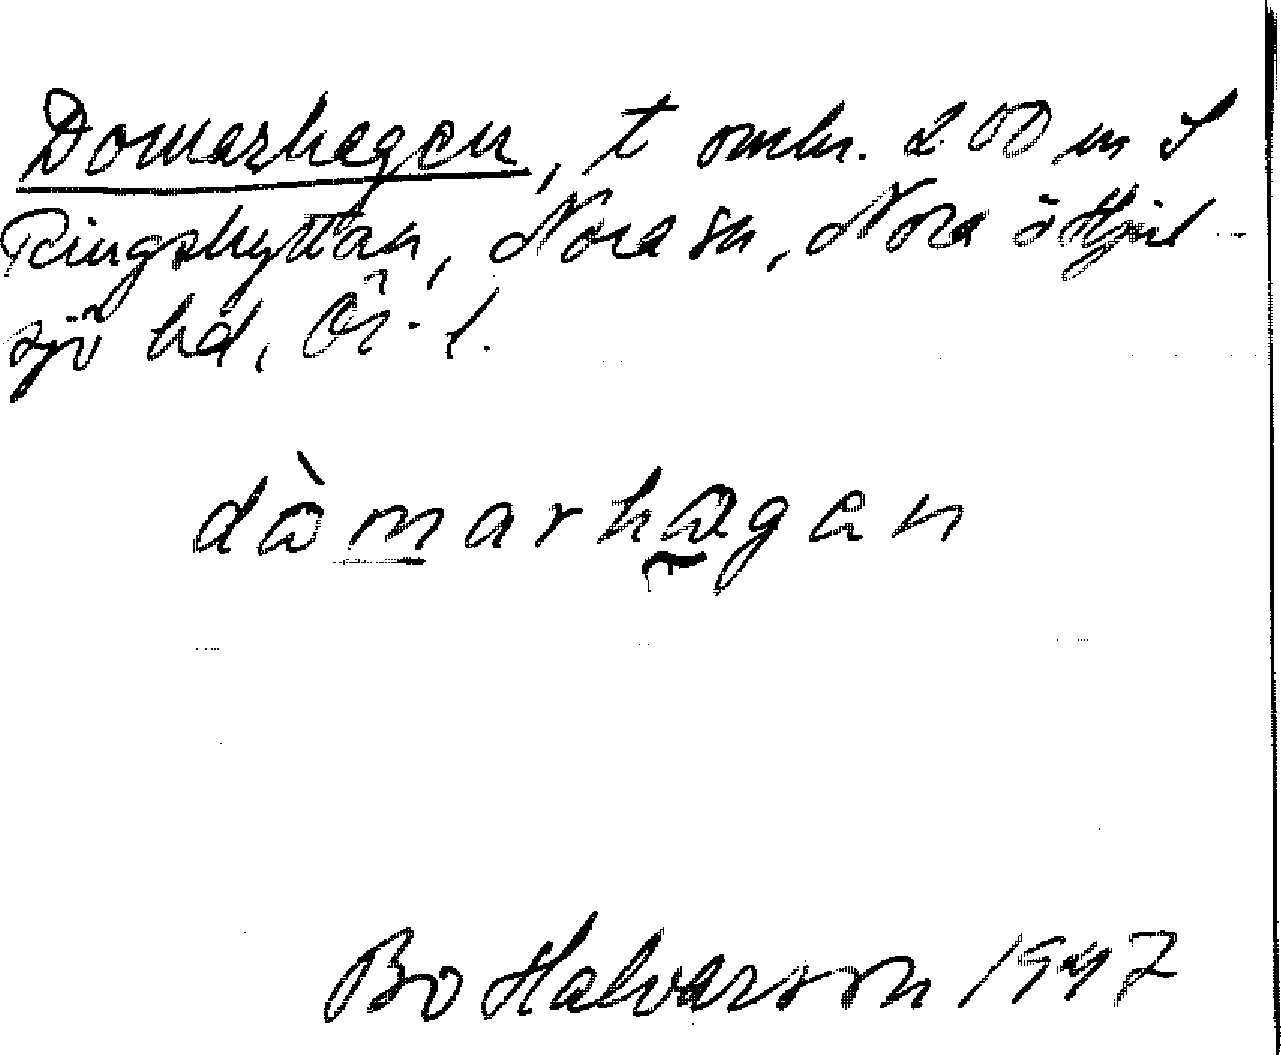 Domarhagen, t omkr. 200 m S
Ringshyttan, Nora sn, Nora o Hjul-
sjö hd, Ör. l.
dòmarhagen
Bo Halvarson 1947